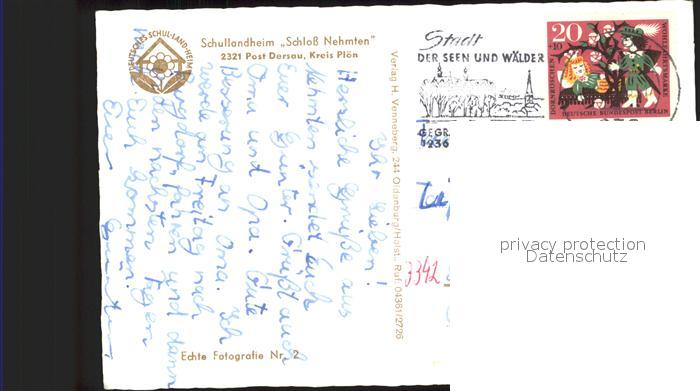 DEUTSCHES SCHUL-LAND-HEIM
Schullandheim „Schloß Nehmten"
2321 Post Dersau, Kreis Plön
Stadt
DER SEEN UND WÄLDER
GEGR.
1236
20
+10
DORNRÖSCHEN
WOHLFAHRTSMARKE
DEUTSCHE BUNDESPOST BERLIN
Verlag H. Vonneberg, 244 Oldenburg/Holst., Ruf: 04361/2726
Ihr Lieben!
Herzliche Grüße aus
Nehmten sendet Euch
Euer Günter. Grüßt auch
Oma und Opa. Gute
Besserung an Oma. Ich
werde am Freitag nach
fahren und dann
in nächsten Tagen
Euch kommen.
Euer Günter
3342
Echte Fotografie Nr. 2
privacy protection
Datenschutz